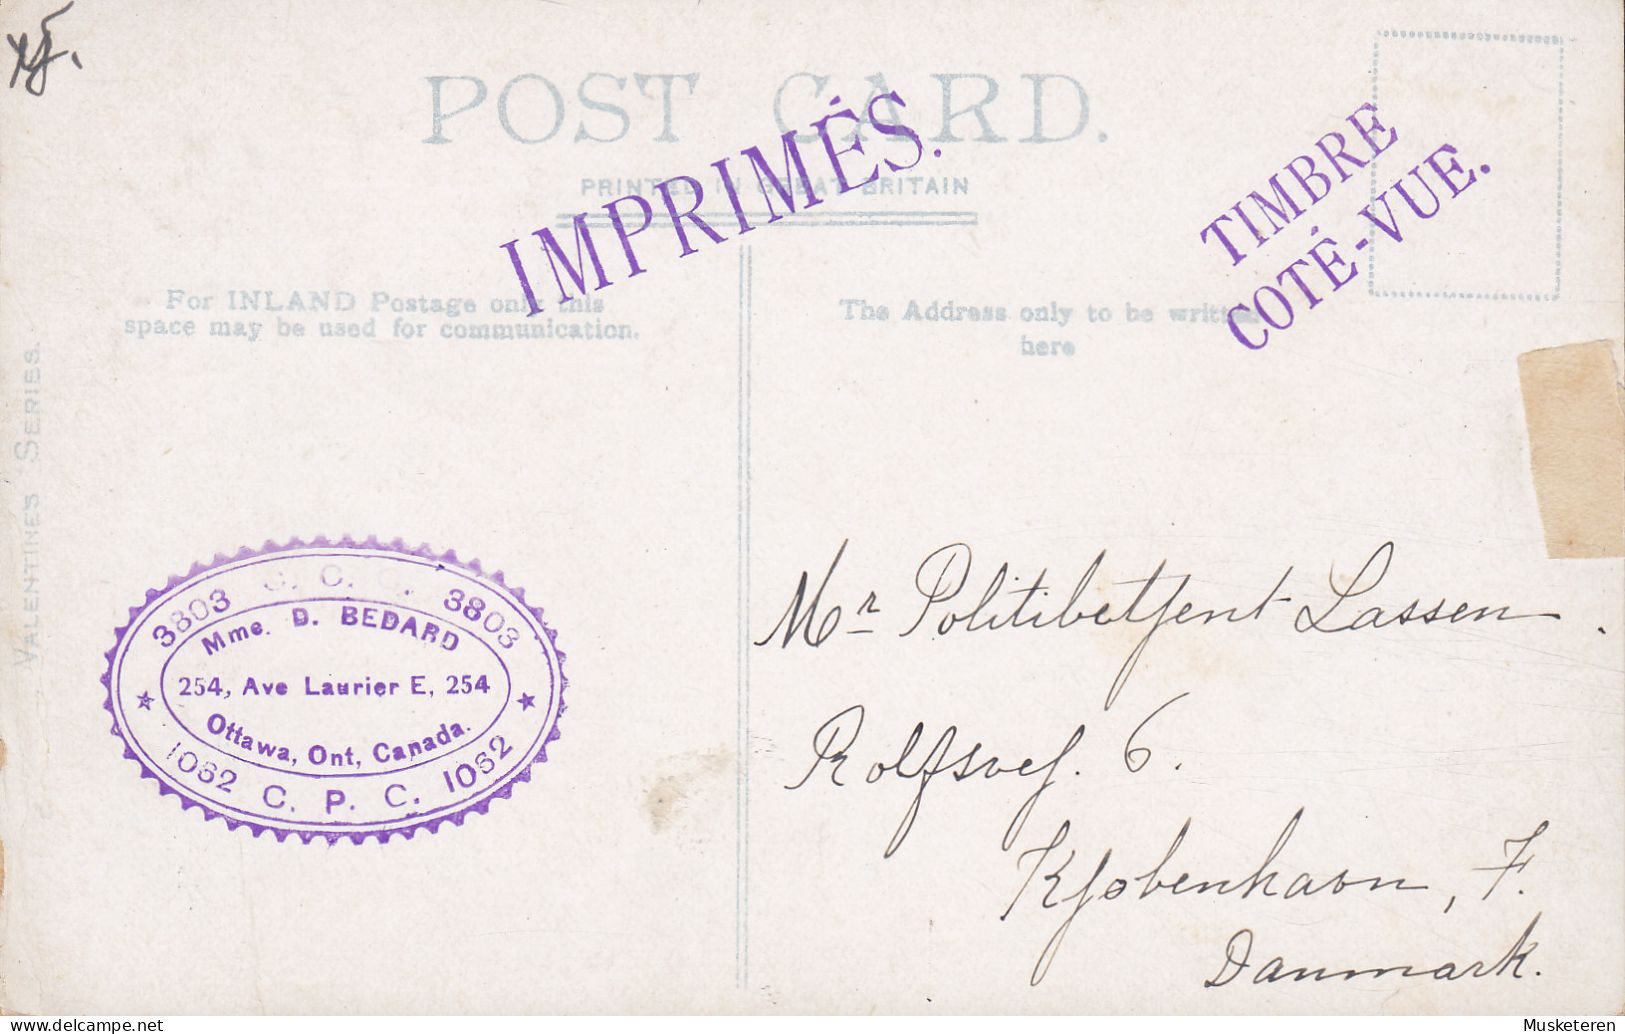 POST CARD.
PRINTED IN GREAT BRITAIN
IMPRIMÉS.
TIMBRE
COTÉ-VUE.
For INLAND Postage only this
space may be used for communication.
The Address only to be written
here
VALENTINES SERIES.
3803 C. C. C. 3803
Mme. D. BEDARD
254, Ave Laurier E, 254
Ottawa, Ont, Canada.
1062 C. P. C. 1062
Mr Politibetjent Lassen.
Rolfsvej. 6.
Kjøbenhavn, F.
Danmark.
Musketeren